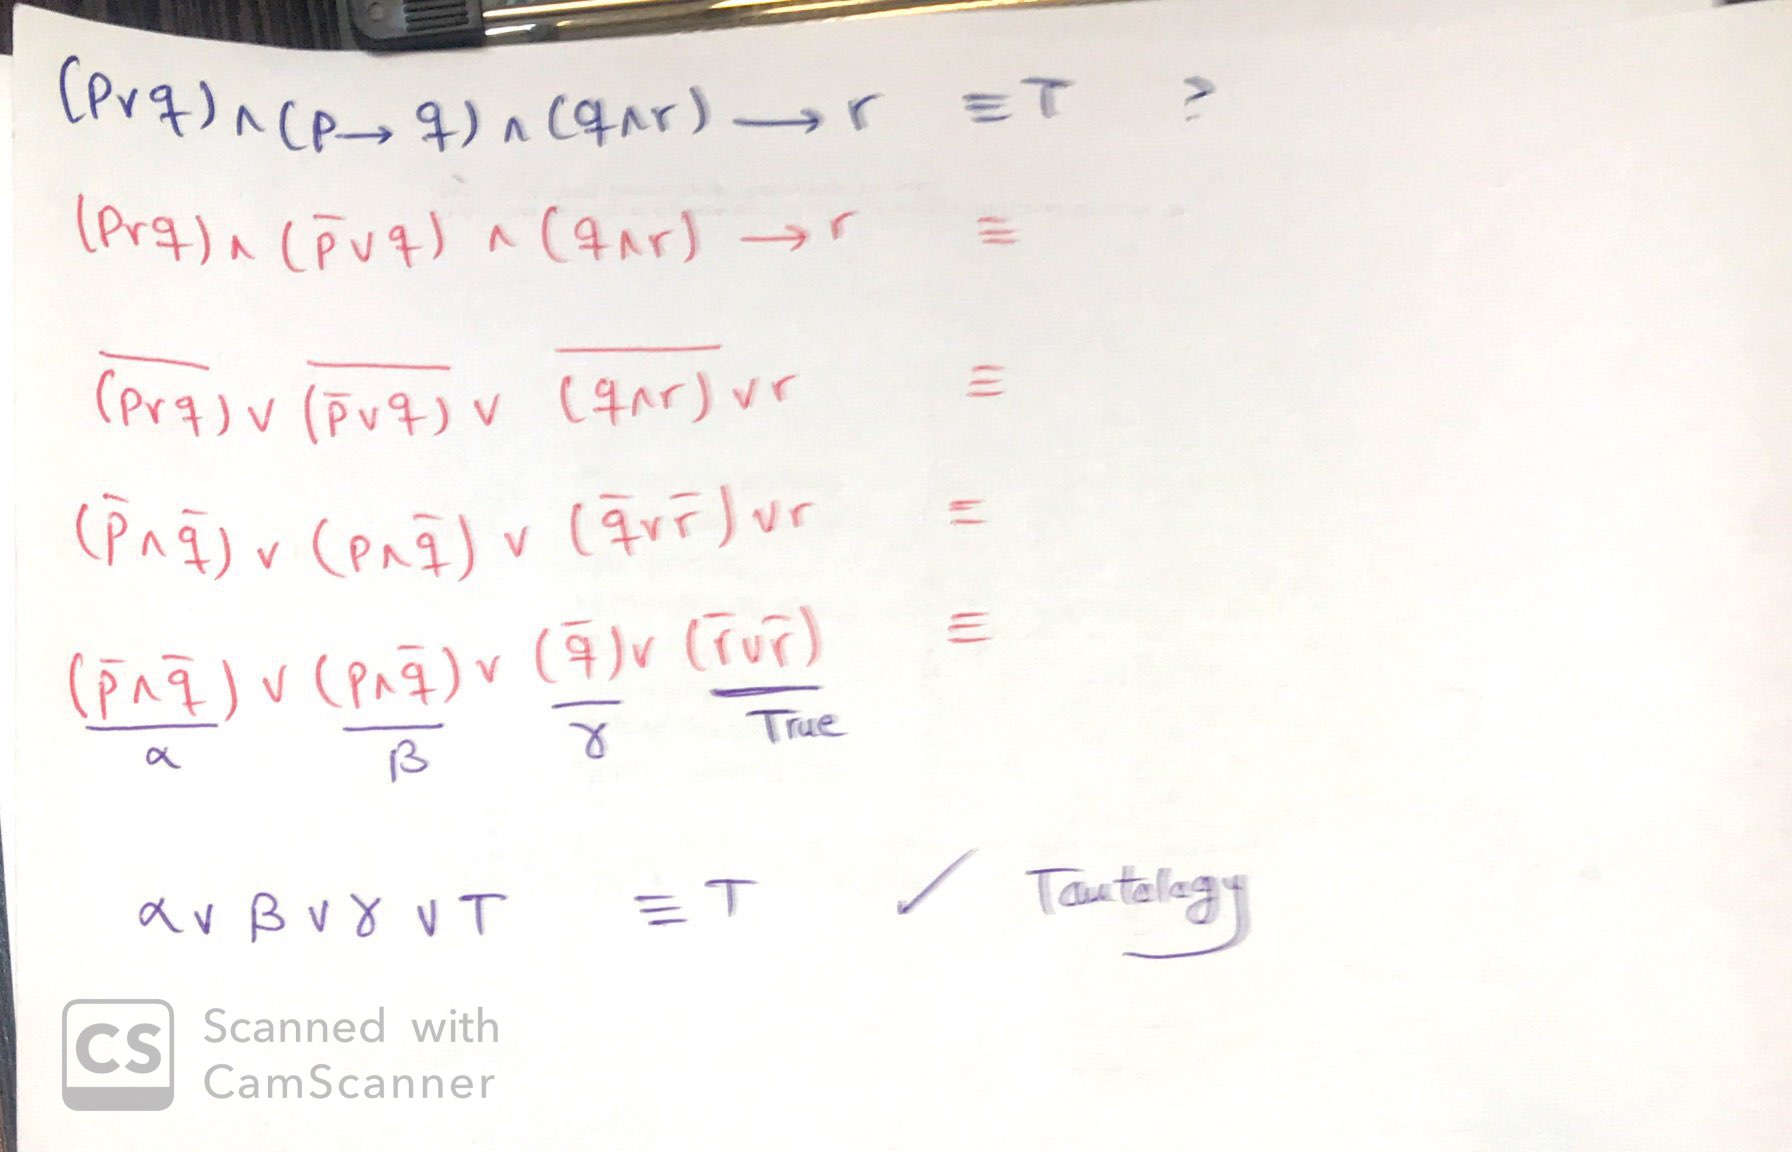 (p∨q)∧(p→q)∧(q∧r)⟶r ≡T ?
(p∨q)∧(p̄∨q)∧(q∧r)→r ≡
\overline{(p∨q)}∨\overline{(p̄∨q)}∨\overline{(q∧r)}∨r ≡
(p̄∧q̄)∨(p∧q̄)∨(q̄∨r̄)∨r ≡
(p̄∧q̄)∨(p∧q̄)∨(q̄)∨(r̄∨r̄) ≡
α β γ True
α∨β∨γ∨T ≡T ✓ Tautology
CS Scanned with
CamScanner